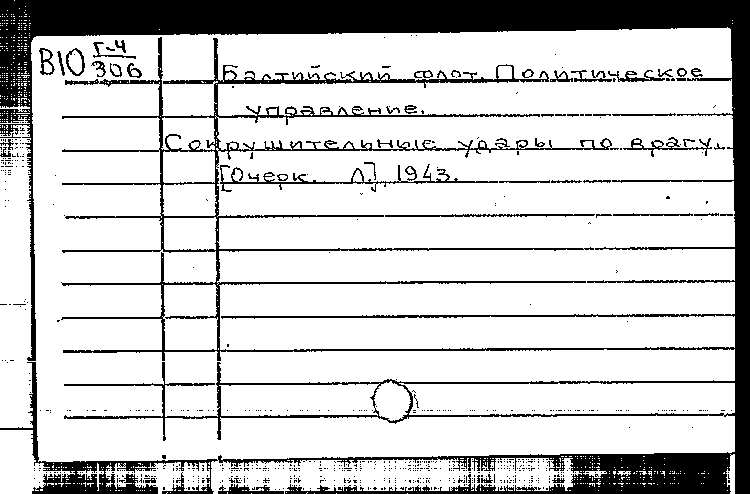 В10 Г-4
306
Балтийский флот. Политическое
управление.
Сокрушительные удары по врагу.
[Очерк. Л.], 1943.